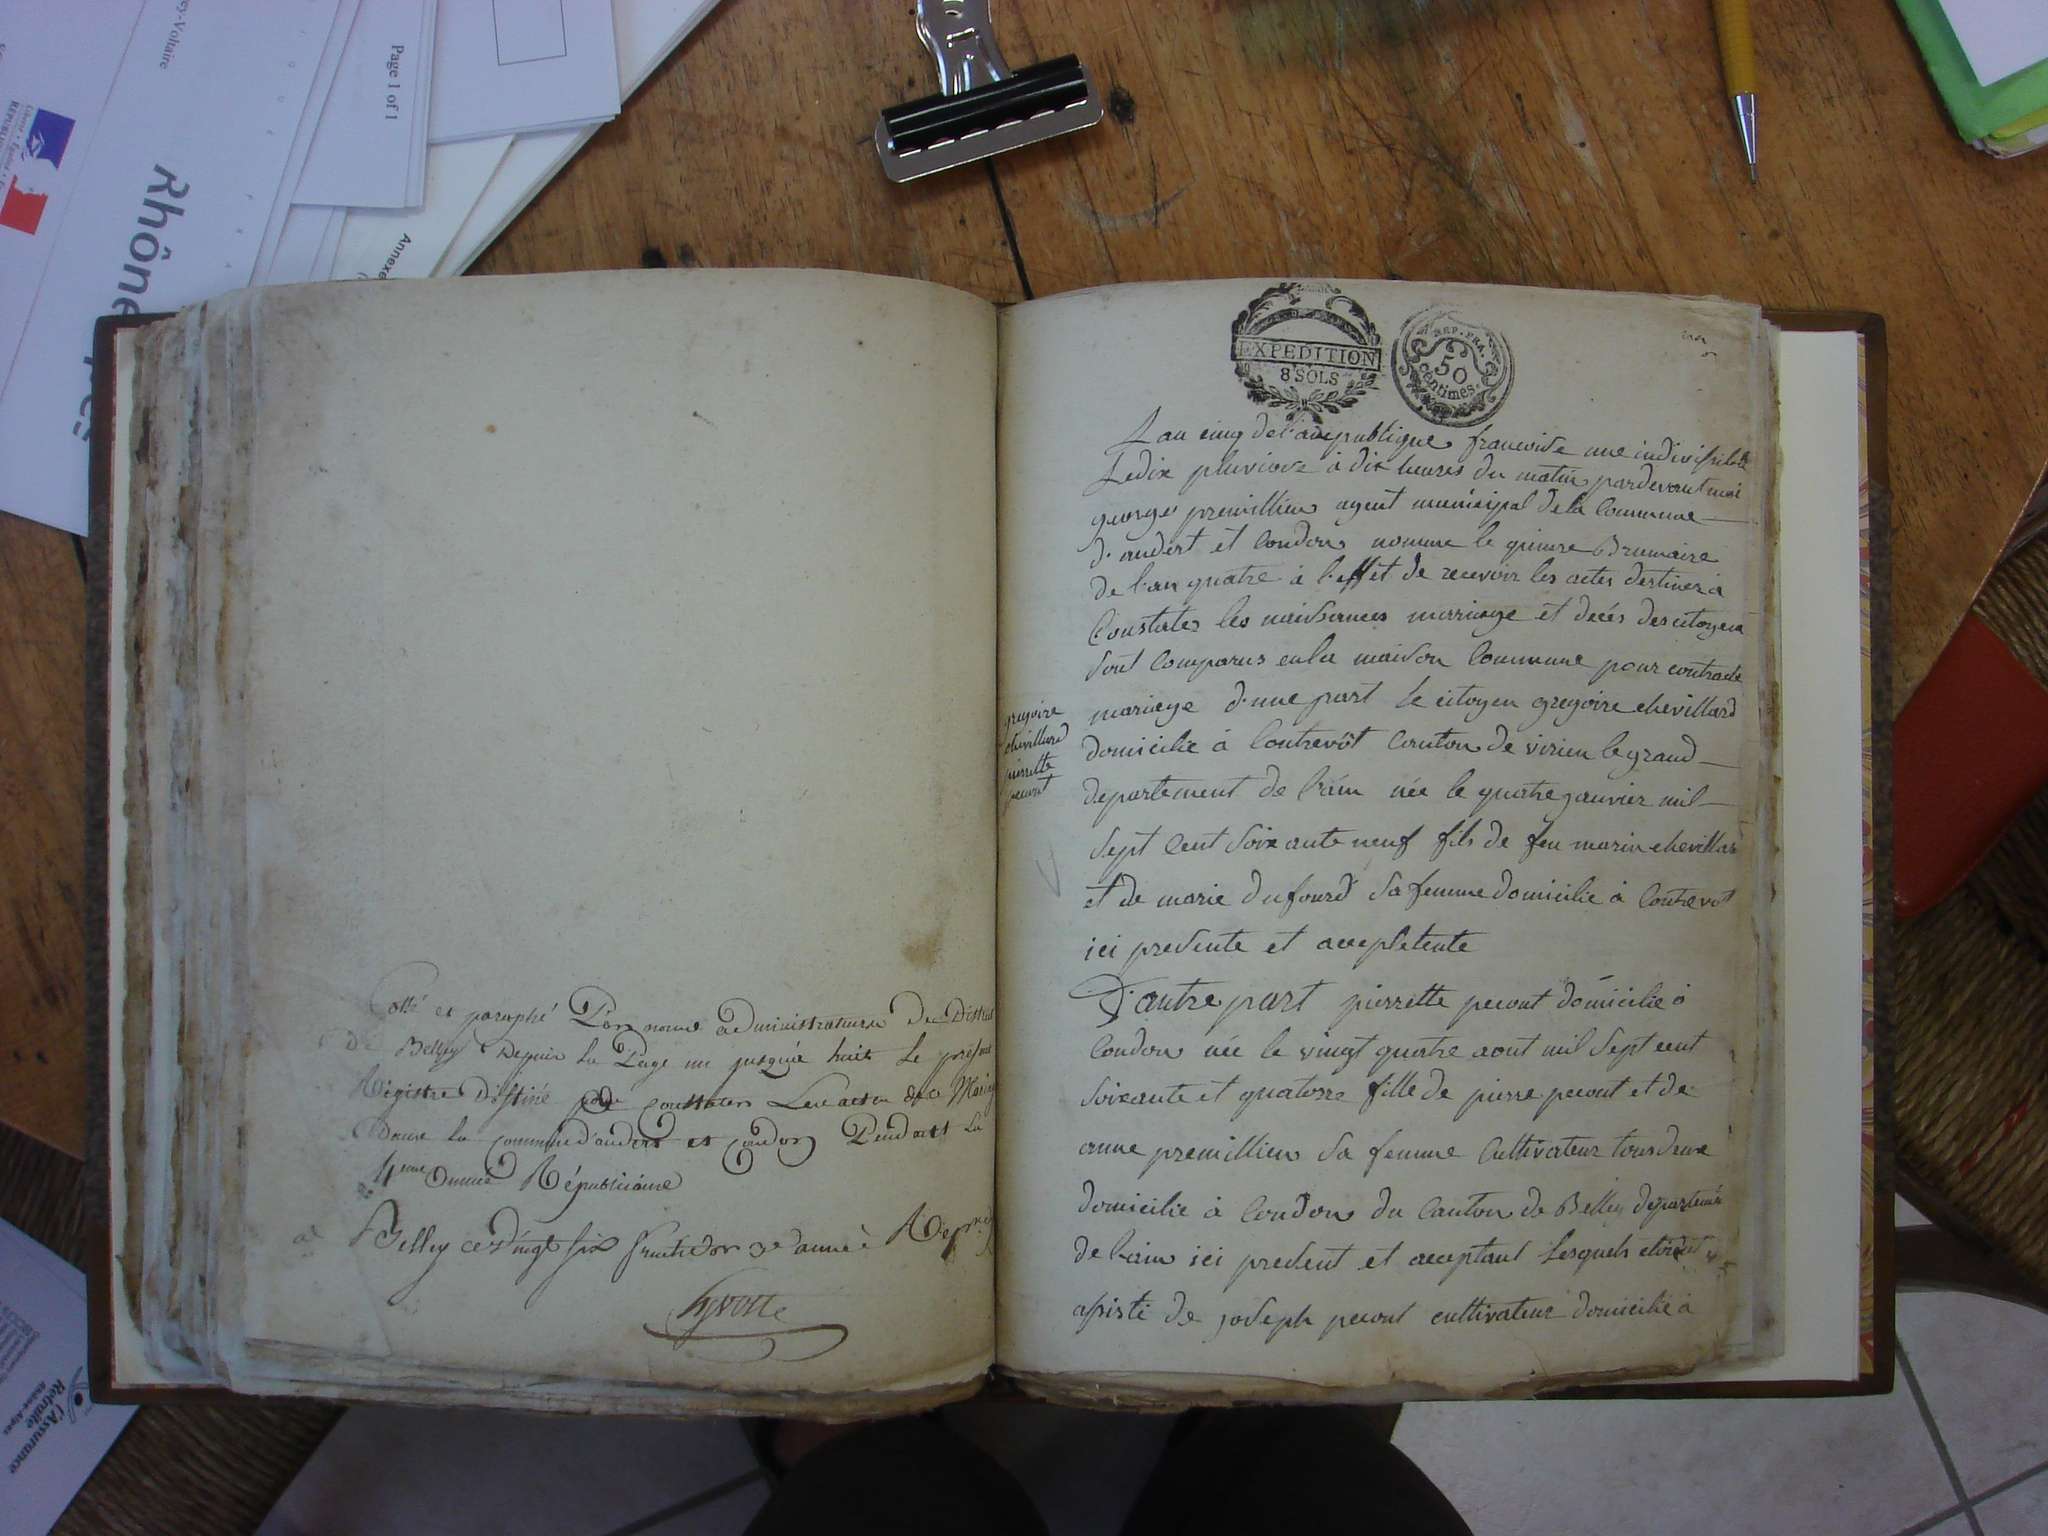 ey-Voltaire
Page 1 of 1
RÉPUBLI
Rhône
Annexe
l'Assurance
Retraite
Rhône-Alpes
Cotté et paraphé Par nous administrateur du District
De Belley Depuis la Page un jusquie huit Le present
Régistre Destiné pour constater Les actes de Mariag
Dans la commune d'andert et condon Pendant La
4eme année Républicaine
a Belley ce vingt six fructidor 3e année Rep.ne
EXPEDITION
8 SOLS
REP. FRA.
50
centimes.
L'an cinq de la republique francoise une indivisible
Le dix pluviose à dix heures du matin pardevant moi
george premillieu agent municipal de la Commune
d'andert et Condon nomme le quinze Brumaire
de l'an quatre à l'effet de recevoir les actes destinez à
Constater les naissances mariage et decés des citoyens
sont Comparus en la maison Commune pour contracte
mariage d'une part le citoyen gregoire chevillard
domicilie à Contrevôt Canton de virieu le grand
departement de l'ain née le quatre janvier mil
sept Cent soixante neuf fils de feu marin chevillard
et de marie Dufourd sa femme domicilie à Contrevot
ici presente et acceptetente
D'autre part pierrette pecout domicilie à
Condon née le vingt quatre aout mil sept cent
soixante et quatorze fille de pierre pecout et de
anne premillieu sa femme Cultivateur tous deux
domicilie à Condon du Canton de Belley departement
de l'ain ici present et acceptant Lesquels etoient
assisté de joseph pecout cultivateur domicilie à
gregoire
chevillard
pierrette
pecout